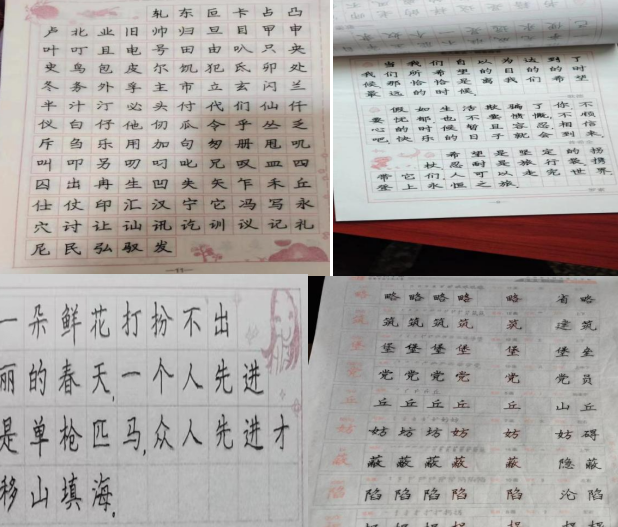 轧东叵卡占凸
卢北业旧帅归旦目甲申
叶叮且电号田由叭只央
史鸟包皮尔饥犯氏卯处
冬务外孚主市立玄闪兰
半汁汀必头付代们仙仟
仪白仔他仞瓜令乎丛乏
斥刍乐用加句匆册甩叽
叫叩另叨叼叱兄叹皿四
囚出冉生凹失矢乍禾丘
仕仗印汇汉宁它冯写永
穴讨让讪讯讫训议记礼
尼民弘驭发
11
当我们自以为达到了
我们所希望的目的时
候那恰恰是离我们希望
最远的时候
假如生活欺骗了你不
要忧郁也不要愤慨不顺
心的时候暂且容忍相信
吧,快乐的日子就会到来。
希望是坚定的拐
杖忍耐是旅行袋携
带它们人可以走完世界
登上永恒之旅
一朵鲜花打扮不出
丽的春天,一个人先进
是单枪匹马,众人先进才
移山填海。
略略略略略略省略
筑筑筑筑筑筑建筑
堡堡堡堡堡堡堡垒
党党党党党党党员
丘丘丘丘丘丘山丘
妨妨妨妨妨妨妨碍
蔽蔽蔽蔽蔽蔽隐蔽
陷陷陷陷陷陷沦陷